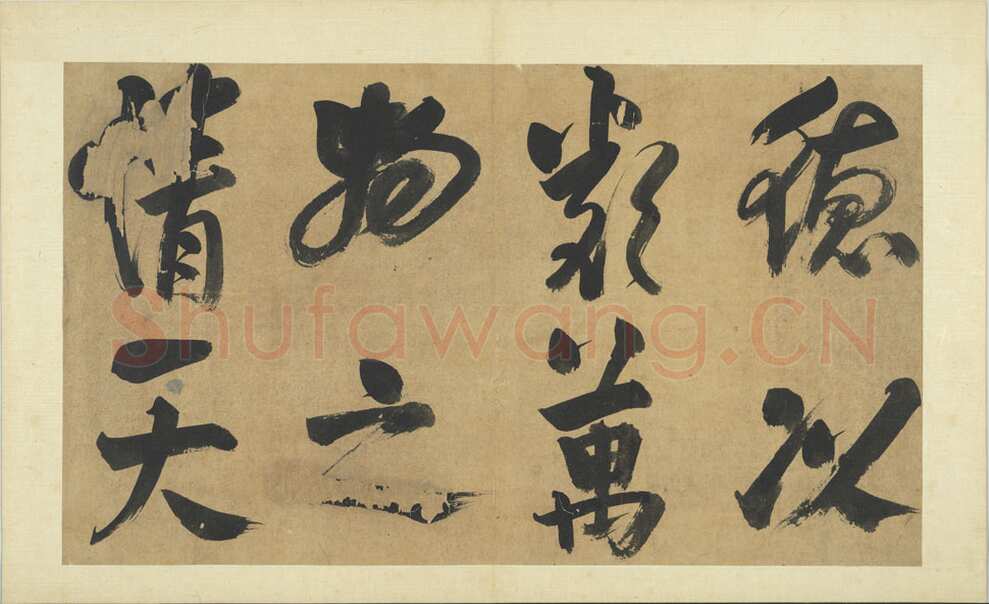 德以
類萬
物之
情天
Shufawang.CN